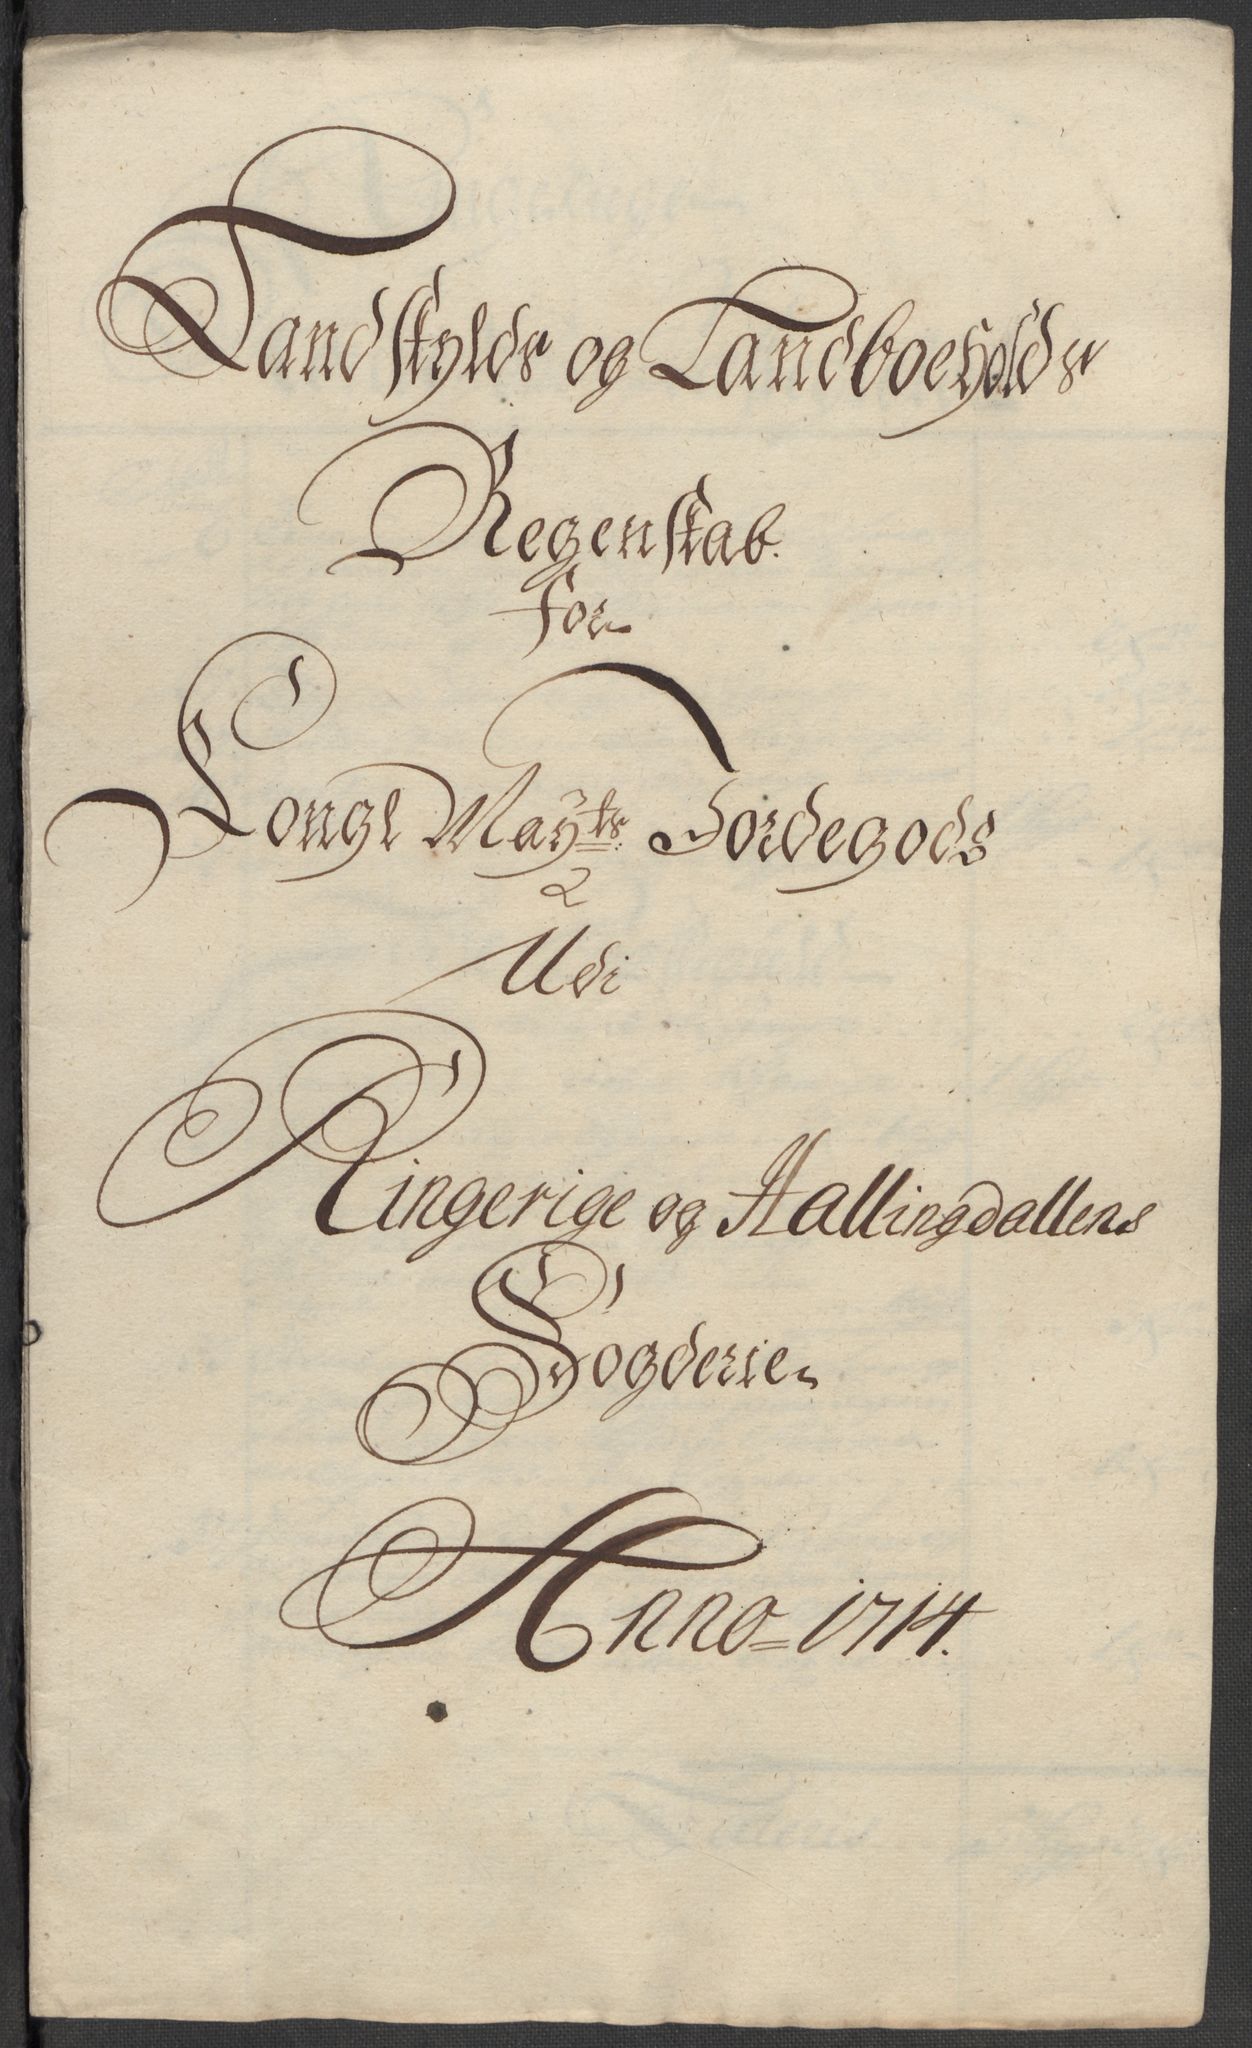 Landskylds og Landboeholds
Regenskab.
for
Kongl Mayts. Jordegods
2
Udi
Ringerige og Hallingdallens
Fogderie
Anno = 1714.